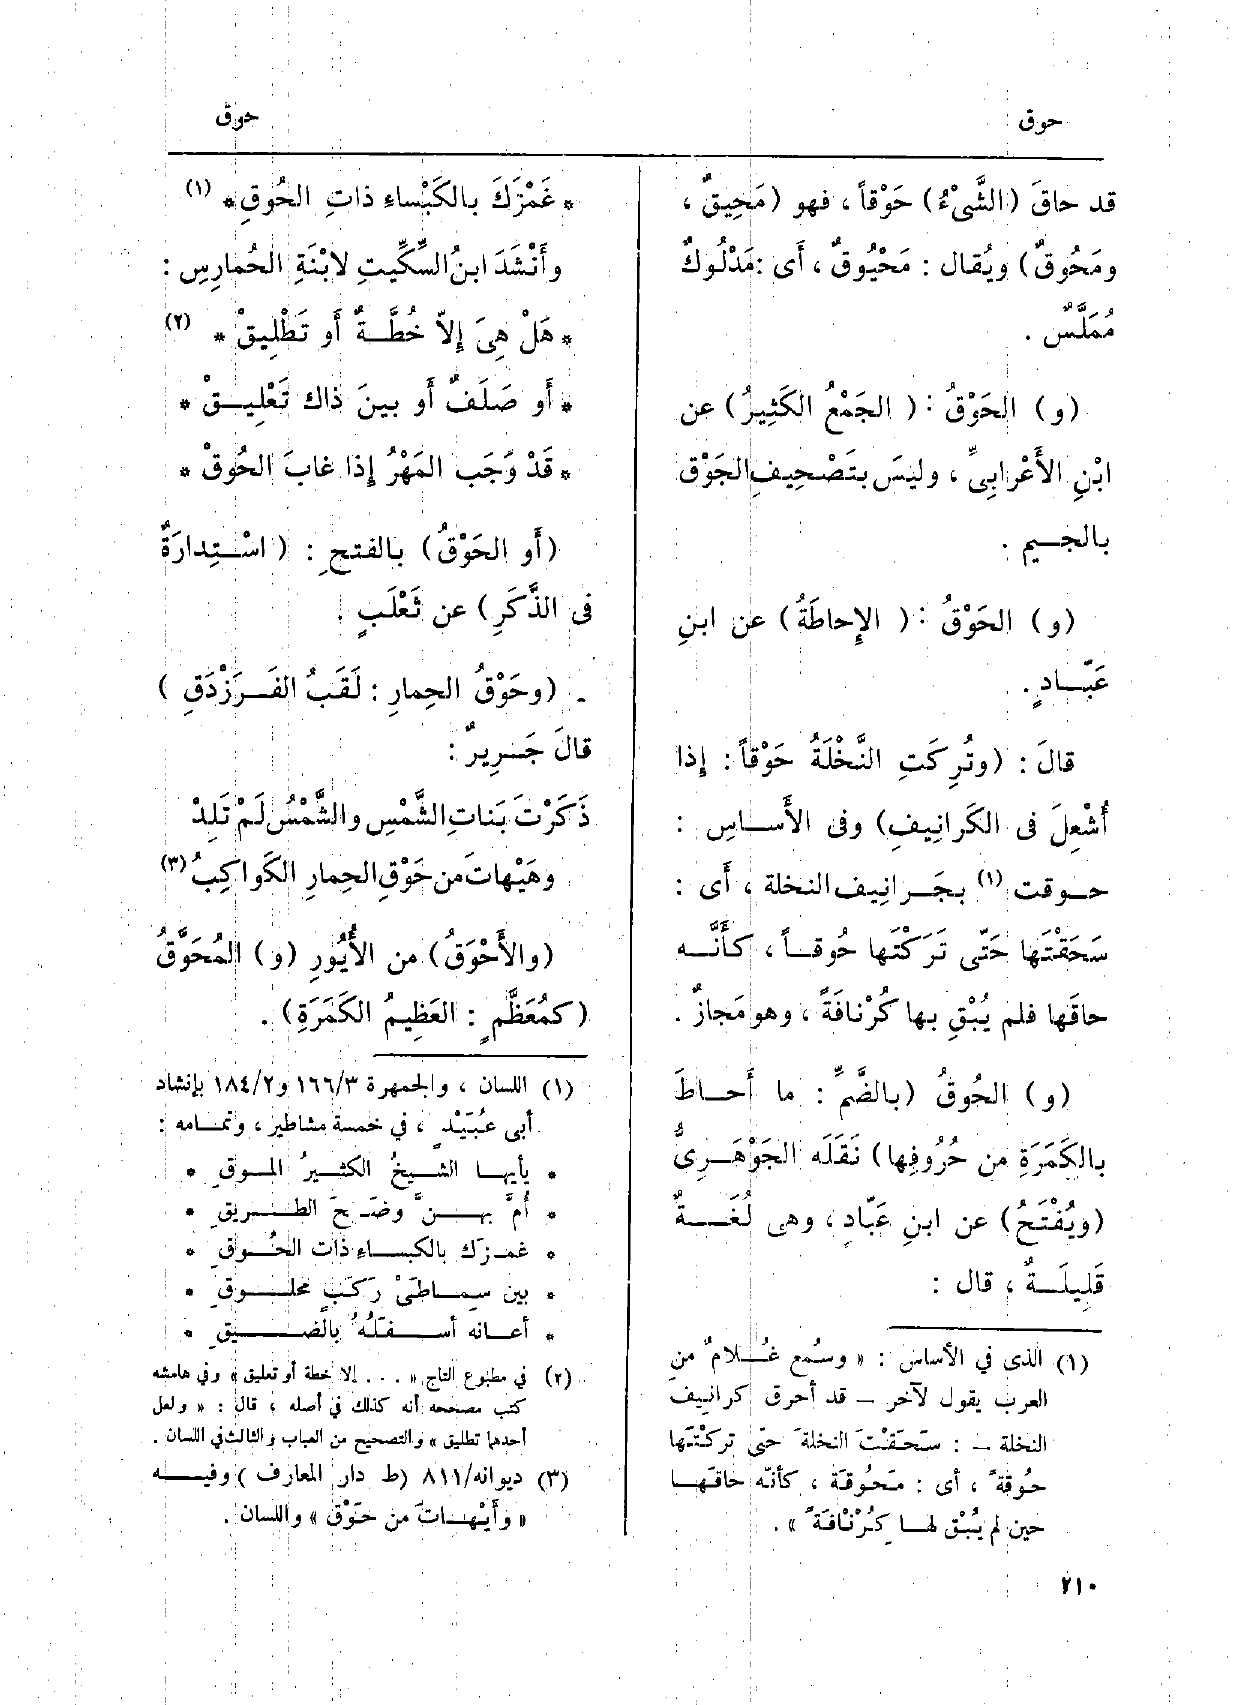 حوق
حوق
قد حاقَ (الشَّىْءُ) حَوْقاً ، فهو (مَحِيقٌ ،
ومَحُوقٌ) ويُقال : مَحْيُوقٌ ، أَى : مَدْلُوكٌ
مُمَلَّسٌ .
(و) الحَوْقُ : ( الجَمْعُ الكَثِيرُ) عن
ابْنِ الأَعْرابِىِّ ، وليسَ بتَصْحِيفِ الجَوْق
بالجـيم .
(و) الحَوْقُ : ( الإِحاطَةُ) عن ابنِ
عَبّـادٍ .
قالَ : (وتُرِكَتِ النَّخْلَةُ حَوْقاً : إِذا
أُشْعِلَ فى الكَرانِيفِ) وفى الأَساسِ :
حـوقت (١) بجَـرانِيف النخلة ، أَى :
سَحَقْتَها حَتّى تَرَكْتَها حُوقـاً ، كأَنَّـه
حاقَها فلم يُبْقِ بها كُرْنافَةً ، وهو مَجازٌ .
(و) الحُوقُ (بالضَّمِّ : ما أَحـاطَ
بالكَمَرَةِ من حُرُوفِها) نَقَلَه الجَوْهَـرِىُّ
(ويُفْتَحُ) عن ابنِ عَبّادٍ ، وهى لُغَـةٌ
قَلِيلَـةٌ ، قال :
(١) الذى في الأساس : « وسُمع غُـلامٌ من
العرب يقول لآخر – قد أحرق كرانيف
النخلة – : سَحَفْتَ النخلةَ حتى تركْتَها
حُوقةً ، أى : مَحُوقَة ، كأنّه حاقَهـا
حين لم يُبْق لهـا كِرْنافَةً » .
* غَمْزَكَ بالكَبْساءِ ذاتِ الحُوقِ * (١)
وأَنْشَدَ ابنُ السِّكِّيتِ لابْنَةِ الحُمارِسِ :
* هَلْ هِىَ إِلاّ خُطَّـةٌ أَو تَطْلِيقْ * (٢)
* أَو صَلَفٌ أَو بينَ ذاك تَعْلِيـقْ *
* قَدْ وَجَب المَهْرُ إِذا غابَ الحُوقْ *
(أَو الحَوْقُ) بالفتحِ : ( اسْـتِدارَةٌ
فى الذَّكَرِ) عن ثَعْلَبٍ .
(وحَوْقُ الحِمارِ : لَقَبُ الفَـرَزْدَقِ )
قالَ جَـرِيرٌ :
ذَكَرْتَ بَناتِ الشَّمْسِ والشَّمْسُ لَمْ تَلِدْ
وهَيْهاتَ من حَوْقِ الحِمارِ الكَواكِبُ (٣)
(والأَحْوَقُ) من الأُيُورِ (و) المُحَوَّقُ
(كمُعَظَّمٍ : العَظِيمُ الكَمَرَةِ) .
(١) اللسان ، والجمهرة ١٦٦/٣ و١٨٤/٢ بإنشاد
أبى عُبَيْدٍ ، في خمسة مشاطير ، وتمـامه :
* يأيهـا الشـيخُ الكثـيرُ المـوقِ *
* أُمَّ بهـنَّ وضَـحَ الطـريقِ *
* غمـزَك بالكبسـاءِ ذات الحُـوقِ *
* بين سِمـاطَىْ رَكَبٍ محلـوقِ *
* أعـانه أسـفَلُهُ بالضـيقِ *
(٢) في مطبوع التاج « . . . إلا خطة أو تعليق » وفي هامشه
كتب مصححه أنه كذلك في أصله ، قال : « ولعل
أحدها تطليق » والتصحيح من العباب والثالث في اللسان .
(٣) ديوانه/٨١١ (ط دار المعارف ) وفيـه
« وأَيْهـاتَ من حَوْق » واللسان .
٢١٠